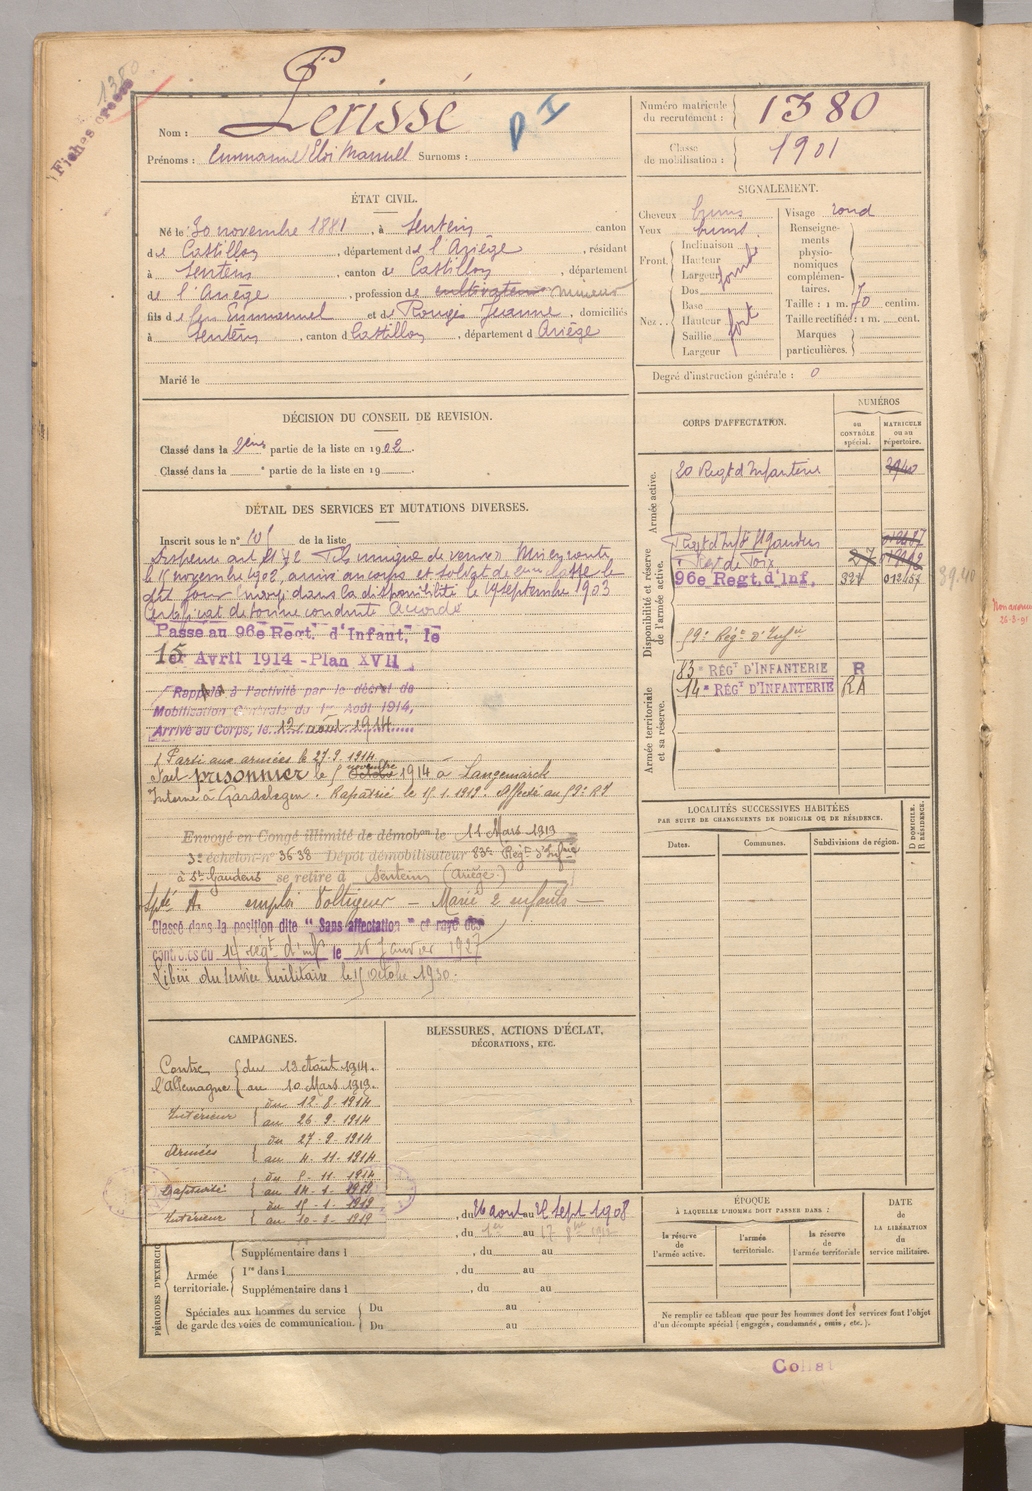 1380
Fiches
Perissé
P I
Nom :
Prénoms : Emmanuel Eloi Manuel Surnoms :
Numéro matricule du recrutement : 1380
Classe de mobilisation : 1901
ÉTAT CIVIL.
Né le 30 novembre 1881, à Sentein canton
de Castillon, département de l'Ariège, résidant
à Sentein, canton de Castillon, département
de l'Ariège, profession de cultivateur mineur
fils de feu Emmanuel et de Rougé Jeanne, domiciliés
à Sentein, canton d Castillon, département d Ariège
Marié le
SIGNALEMENT.
Cheveux bruns
Yeux bruns.
Front,
Inclinaison
Hauteur
Largeur
Nez..
Dos
Base
Hauteur
Saillie
Largeur
fort
Visage rond
Renseignements physionomiques complémentaires.
Taille : 1 m. 70 centim.
Taille rectifiée : 1 m. cent.
Marques particulières.
Degré d'instruction générale : 0
DÉCISION DU CONSEIL DE REVISION.
Classé dans la 2ème partie de la liste en 1902.
Classé dans la ° partie de la liste en 19
CORPS D'AFFECTATION.
NUMÉROS
au CONTRÔLE spécial.
MATRICULE ou au répertoire.
Armée active.
20 Regt d'Infanterie
Disponibilité et réserve de l'armée active.
Regt d'Inf St Gaudens
Regt de Foix
96e Regt. d'Inf.
59e Régt d'Infie
Armée territoriale et sa réserve.
83e RÉGt D'INFANTERIE R
14e RÉGt D'INFANTERIE RA
39.40
DÉTAIL DES SERVICES ET MUTATIONS DIVERSES.
Inscrit sous le n° 101 de la liste
Dispensé art 21 § 2 Fils unique de veuve Mis en route
le 15 novembre 1902, arrivé au corps et soldat de 2eme classe le
dit jour Envoyé dans la disponibilité le 19 septembre 1903
Certificat de bonne conduite Accordé
Passe au 96e Regt. d'Infant. le
15 Avril 1914 - Plan XVII
Rappelé à l'activité par le décret de
Mobilisation Générale du 1er Août 1914,
Arrivé au Corps, le 12 août 1914
Parti aux armées le 27.9.1914
Fait prisonnier le 5 octobre novembre 1914 à Langemarck
Interné à Gardelegen. Rapatrié le 15.1.1919. Affecté au 59e RI
Envoyé en Congé illimité de démobon le 11 Mars 1919
3e échelon n° 3638 Dépôt démobilisateur 83e Régt d'Infie
à St Gaudens se retire à Sentein (Ariège)
Spté A. emploi Voltigeur — Marié 2 enfants —
Classé dans la position dite "Sans affectation" et rayé des
contrôles du 14 regt d'inf le 15 Janvier 1927
Libéré du service militaire le 15 octobre 1930.
LOCALITÉS SUCCESSIVES HABITÉES
PAR SUITE DE CHANGEMENTS DE DOMICILE OU DE RÉSIDENCE.
Dates.
Communes.
Subdivisions de région.
D DOMICILE. R RÉSIDENCE.
CAMPAGNES.
Contre l'Allemagne du 13 Août 1914.
au 10 Mars 1919.
Intérieur du 12-8-1914
au 26-9-1914
Armées du 27-9-1914
au 4-11-1914
Captivité du 5-11-1914
au 14-1-1919
Intérieur du 15-1-1919
au 10-3-1919
BLESSURES, ACTIONS D'ÉCLAT,
DÉCORATIONS, ETC.
PÉRIODES D'EXERCIC
, du 26 aout au 22 Sept 1908
, du 1er au 17
Supplémentaire dans l , du au
Armée territoriale.
1re dans l , du au
Supplémentaire dans l , du au
Spéciales aux hommes du service de garde des voies de communication.
Du au
Du au
ÉPOQUE
À LAQUELLE L'HOMME DOIT PASSER DANS :
la réserve de l'armée active.
l'armée territoriale.
la réserve de l'armée territoriale
DATE de LA LIBÉRATION du service militaire.
Ne remplir ce tableau que pour les hommes dont les services font l'objet
d'un décompte spécial (engagés, condamnés, omis, etc.).